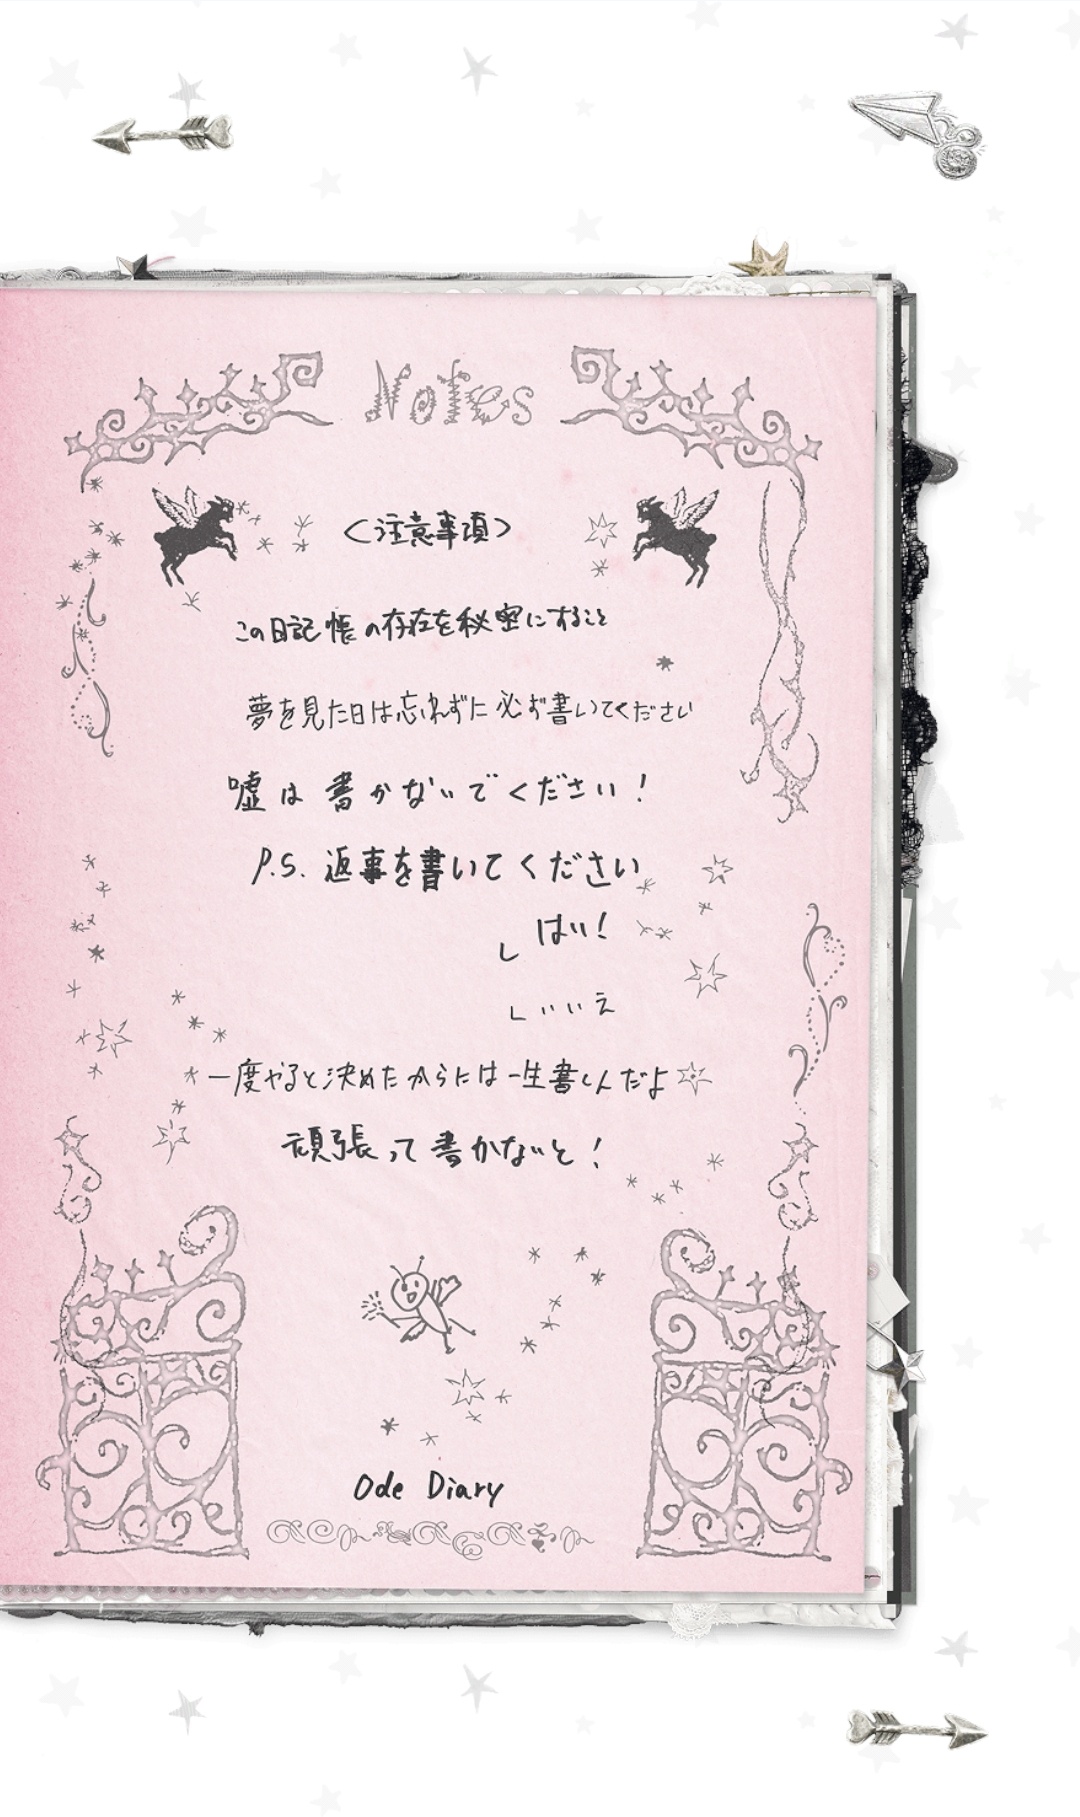 Notes
〈注意事項〉
この日記帳の存在を秘密にすること
夢を見た日は忘れずに必ず書いてください
嘘は書かないでください!
P.S. 返事を書いてください
し はい!
し いいえ
一度やると決めたからには一生書くんだよ
頑張って書かないと!
Ode Diary